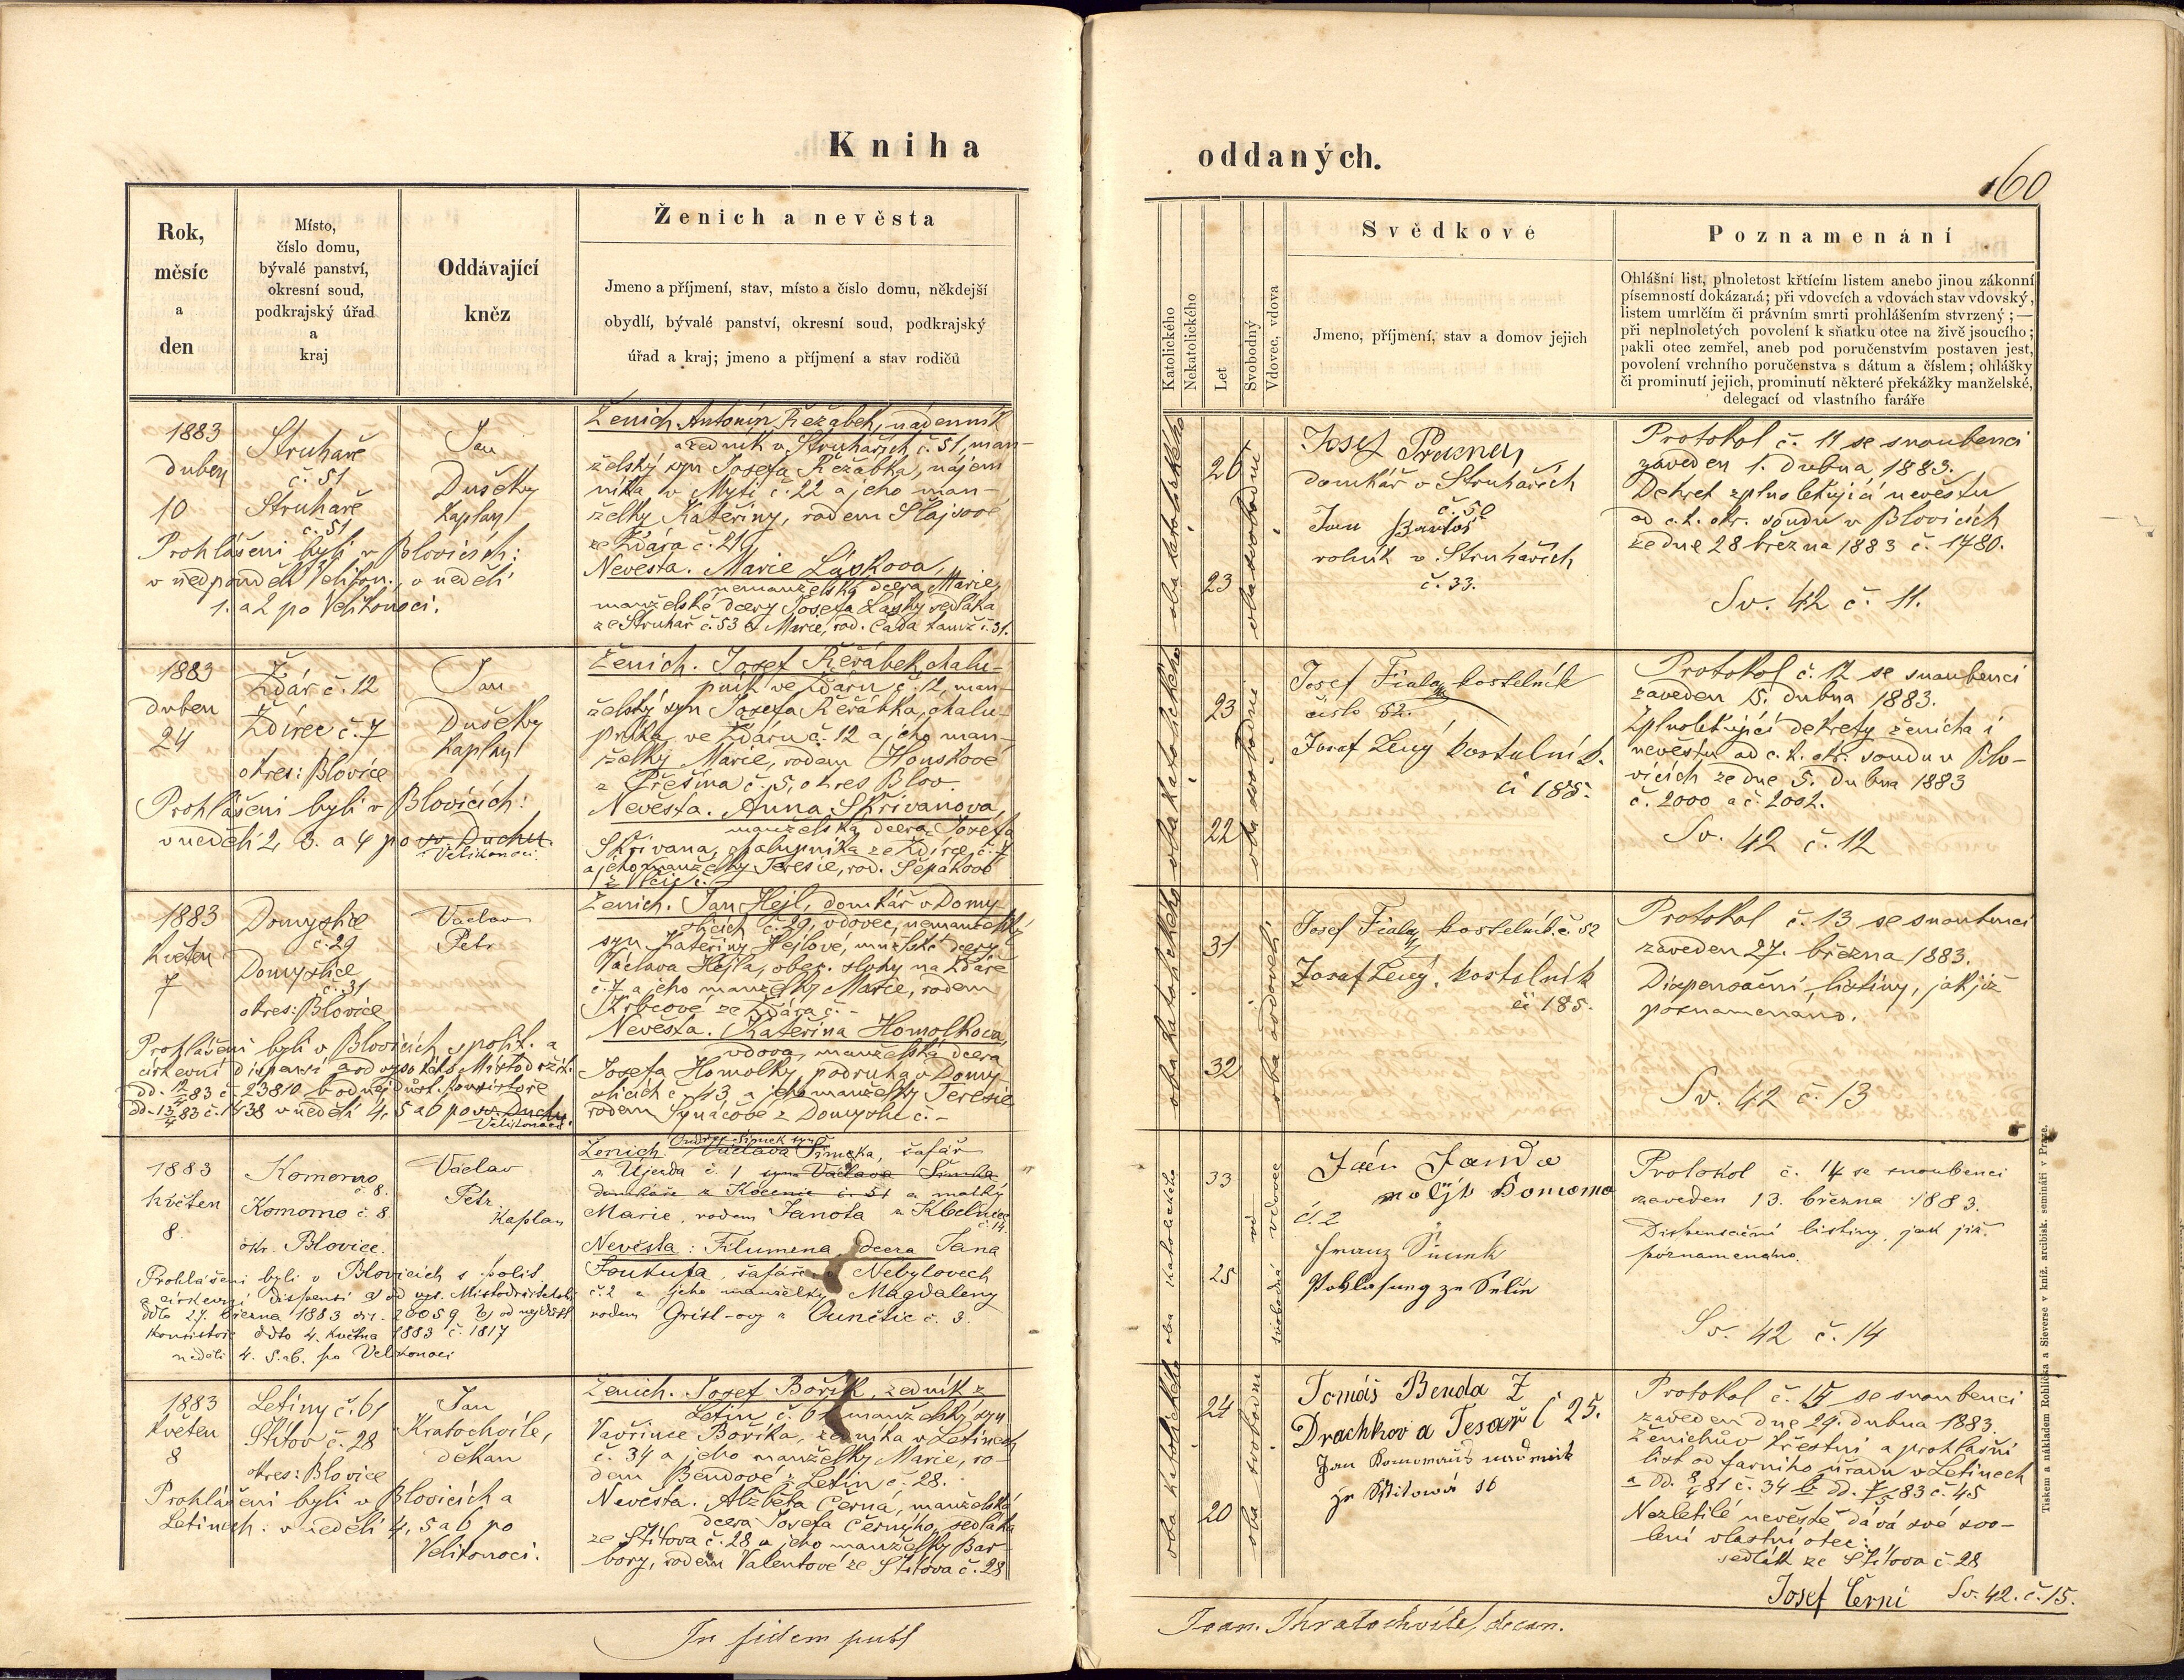 Kniha
oddaných.
160
Rok,
měsíc
a
den
Místo,
číslo domu,
bývalé panství,
okresní soud,
podkrajský úřad
a
kraj
Oddávající
kněz
Ženich a nevěsta
Jmeno a příjmení, stav, místo a číslo domu, někdejší
obydlí, bývalé panství, okresní soud, podkrajský
úřad a kraj; jmeno a příjmení a stav rodičů
Katolického
Nekatolického
Let
Svobodný
Vdovec, vdova
Svědkové
Jmeno, příjmení, stav a domov jejich
Poznamenání
Ohlášní list, plnoletost křtícím listem anebo jinou zákonní
písemností dokázaná; při vdovcích a vdovách stav vdovský,
listem umrlčím či právním smrti prohlášením stvrzený; —
při neplnoletých povolení k sňatku otce na živě jsoucího;
pakli otec zemřel, aneb pod poručenstvím postaven jest,
povolení vrchního poručenstva s dátum a číslem; ohlášky
či prominutí jejich, prominutí některé překážky manželské,
delegací od vlastního faráře
1883
duben
10
Struhaře
č. 51
Struhaře
č. 51
Jan
Dušek
kaplan
Prohlášeni byli v Blovicích:
v ned. pondělí Velikon., v neděli
1. a 2 po Velikonoci.
Ženich. Antonín Řežábek, nádenník
a zedník v Struhařích č. 51, man-
želský syn Josefa Řežábka, nájem
níka v Mýti č. 22 a jeho man-
želky Kateřiny, rodem Šlajsové
ze Ždára č. 21
Nevěsta. Marie Láskova,
nemanželská dcera Marie,
manželské dcery Josefa Lásky sedláka
ze Struhař č. 53 a Marie, rod. Cada tamž č. 31.
oba katolického
26
23
oba svobodní
Josef Prazney
domkář v Struhařích
č. 50
Jan Bartoš
rolník v Struhařích
č. 33.
Protokol č. 11 se snoubenci
zaveden 1. dubna 1883.
Dekret zplnoletňující nevěstu
od c. k. okr. soudu v Blovicích
ze dne 28 března 1883 č. 1780.
Sv. 42 č. 11.
1883
duben
24
Ždár č. 12
Ždírec č. 7
okres: Blovice
Jan
Dušek
kaplan
Prohlášeni byli v Blovicích:
v neděli 2, 3. a 4 po sv. Duchu.
Velikonoci.
Ženich. Josef Řeřábek, chalu-
pník ve Ždáru č. 12, man-
želský syn Josefa Řeřábka, chalu-
pníka ve Ždáru č. 12 a jeho man-
želky Marie, rodem Honskové
z Přešína č. 5, okres Blov.
Nevěsta. Anna Skřivanova,
manželská dcera Josefa
Skřivana, chalupníka ze Ždírce č. 7
a jeho manželky Teresie, rod. Šepákové
oba katolického
23
22
oba svobodní
Josef Fiala, kostelník
číslo 52.
Josef Lený kostelník.
č 185.
Protokol č. 12 se snoubenci
zaveden 15. dubna 1883.
Zplnoletňující dekrety ženicha i
nevěstu od c. k. okr. soudu v Blo-
vicích ze dne 5. dubna 1883
č. 2000 a č. 2002.
Sv. 42 č. 12
1883
květen
7
Domyslice
č. 29
Domyslice
č. 31
okres: Blovice
Václav
Petr
Prohlášeni byli v Blovicích s polit. a
církevní dispensí a od vysokého Místodržit.
dd. 12/4 83 č. 23810 b od nejdůst. konsistoře
dd. 13/4 83 č. 1438 v neděli 4, 5 a 6 po sv. Duchu
Velikonoci.
Ženich. Jan Hejl, domkář v Domy-
slicích č. 29, vdovec, nemanželský
syn Kateřiny Hejlové, manželské dcery
Václava Hejla, obec. slouhy na Ždáře
č. 7 a jeho manželky Marie, rodem
Krbcové ze Ždára č. -
Nevěsta. Kateřina Homolkova,
vdova, manželská dcera
Josefa Homolky, podruha v Domy-
slicích č. 43 a jeho manželky Teresie
rodem Synáčové z Domyslic č. -
oba katolického
31
32
oba ovdovělí
Josef Fiala, kostelník č. 52
Josef Lený, kostelník
č 185.
Protokol č. 13 se snoubenci
zaveden 27. března 1883.
Dispensační listiny, jak již
poznamenáno.
Sv. 42 č. 13
1883
květen
8.
Komorno
č. 8.
Komorno č. 8.
okr. Blovice.
Václav
Petr
kaplan
Prohlášeni byli v Blovicích s polit.
a církevní dispensí a) od vys. Místodržitelství
ddto 27. března 1883 čís. 20059 b) od nejdůst.
konsistoře ddto 4. května 1883 č. 1817
neděli 4. 5. a 6. po Velikonoci
Ondřej Šimek syn
Ženich Václava Šimka, šafář
z Újezda č. 1 syn Václava Šimka
domkáře z Kocenic č. 51 a matky
Marie, rodem Janota z Kbelnice
č. 14.
Nevěsta: Filumena, dcera Jana
Foukufa, šafáře v Nebylovech
č. 2 a jeho manželky Magdaleny
rodem Gristl-ovy z Čunětic č. 3.
oba katolického
33
25
vdovec
svobodná
Ján Janda
č. 2
Franz Šimek
Protokol č. 14 se snoubenci
zaveden 13. března 1883.
Dispensační listiny, jak již
poznamenáno.
Sv. 42 č. 14
1883
květen
8
Letiny č. 61
Štítov č. 28
okres: Blovice
Jan
Kratochvíle,
děkan
Prohlášeni byli v Blovicích a
Letinech: v neděli 4, 5 a 6 po
Velikonoci.
Ženich. Josef Bořík, zedník z
Letin č. 61 manželský syn
Vavřince Boříka, zedníka v Letinech
č. 34 a jeho manželky Marie, ro-
dem Bendové z Letin č. 28.
Nevěsta. Alžběta Černá, manželská
dcera Josefa Černýho, sedláka
ze Štítova č. 28 a jeho manželky Bar-
bory, rodem Valentové ze Štítova č. 28
oba katolického
24
20
oba svobodní
Tomáš Benda Z
Drachkov a Tesař č 25.
Protokol č. 15 se snoubenci
zaveden dne 29. dubna 1883.
Ženichův křestní a prohlašní
list od farního úřadu v Letinech
Nezletilé nevěstě dává své svo-
lení vlastní otec:
sedlák ze Štítova č 28
Josef Černí Sv. 42. č. 15.
In fidem publ
Joan. Kratochvíle, decan.
Tiskem a nákladem Rohlíčka a Sieverse v kníž. arcibisk. semináři v Praze.